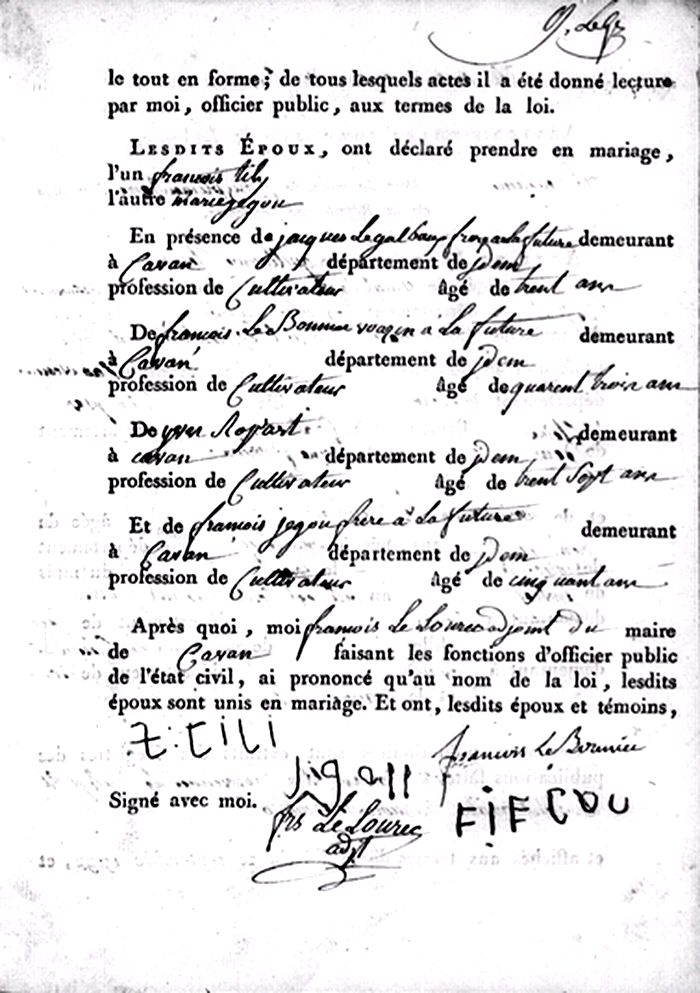 le tout en forme; de tous lesquels actes il a été donné lecture
par moi, officier public, aux termes de la loi.
LESDITS ÉPOUX, ont déclaré prendre en mariage,
l'un francois tily
l'autre marie jegou
En présence de jacques Le gal demeurant
à Cavan département de jdem
profession de Cultivateur âgé de trent ans
De francois Le Bonniec voazin a La future demeurant
à Cavan département de jdem
profession de Cultivateur âgé de quarent trois ans
De yves Roppart demeurant
à cavan département de jdem
profession de Cultivateur âgé de trent Sept ans
Et de francois jegou frere a La future demeurant
à Cavan département de jdem
profession de Cultivateur âgé de cinquant ans
Après quoi, moi francois Le Lourec adjoint du maire
de Cavan faisant les fonctions d'officier public
de l'état civil, ai prononcé qu'au nom de la loi, lesdits
époux sont unis en mariage. Et ont, lesdits époux et témoins,
francois Le Bonniec
Signé avec moi.
frs Le Lourec
adjt